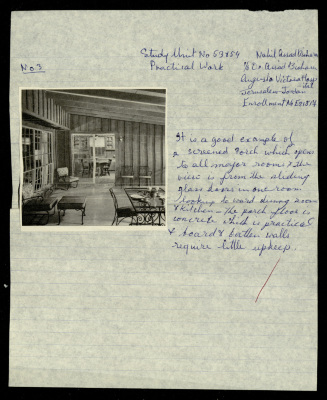 No 3
Study Unit No 53 & 54
Practical Work
Nahil
% Dr.
Augusta Victoria Hosp
Jerusalem-Jordan
Enrollment No
It is a good example of
a screened Porch which opens
to all major rooms & the
view is from the sliding
glass doors in one room
looking toward dining room
& kitchen - The porch floor is
concrete which is practical
& board & batten walls
require little upkeep.